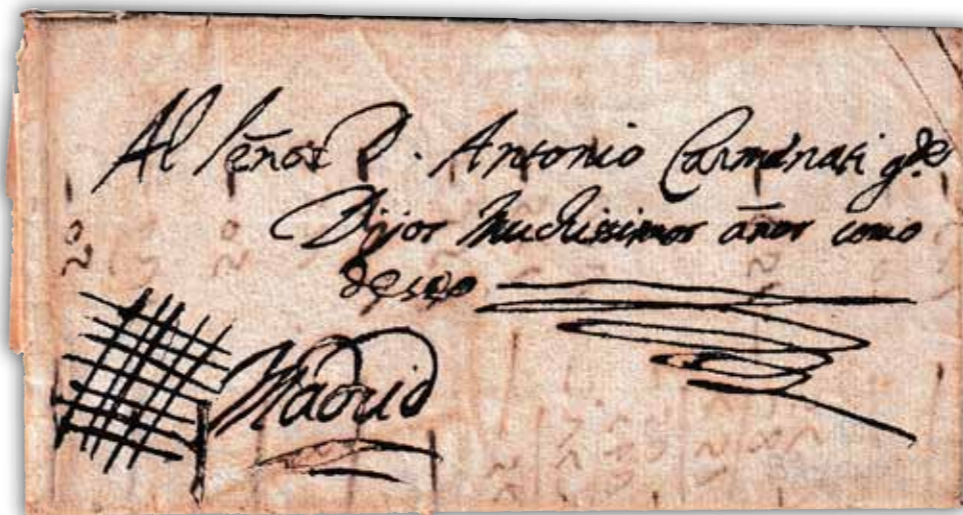 Al señor D. Antonio Carminati g.de
Dios muchissimos años como
deseo
Madrid